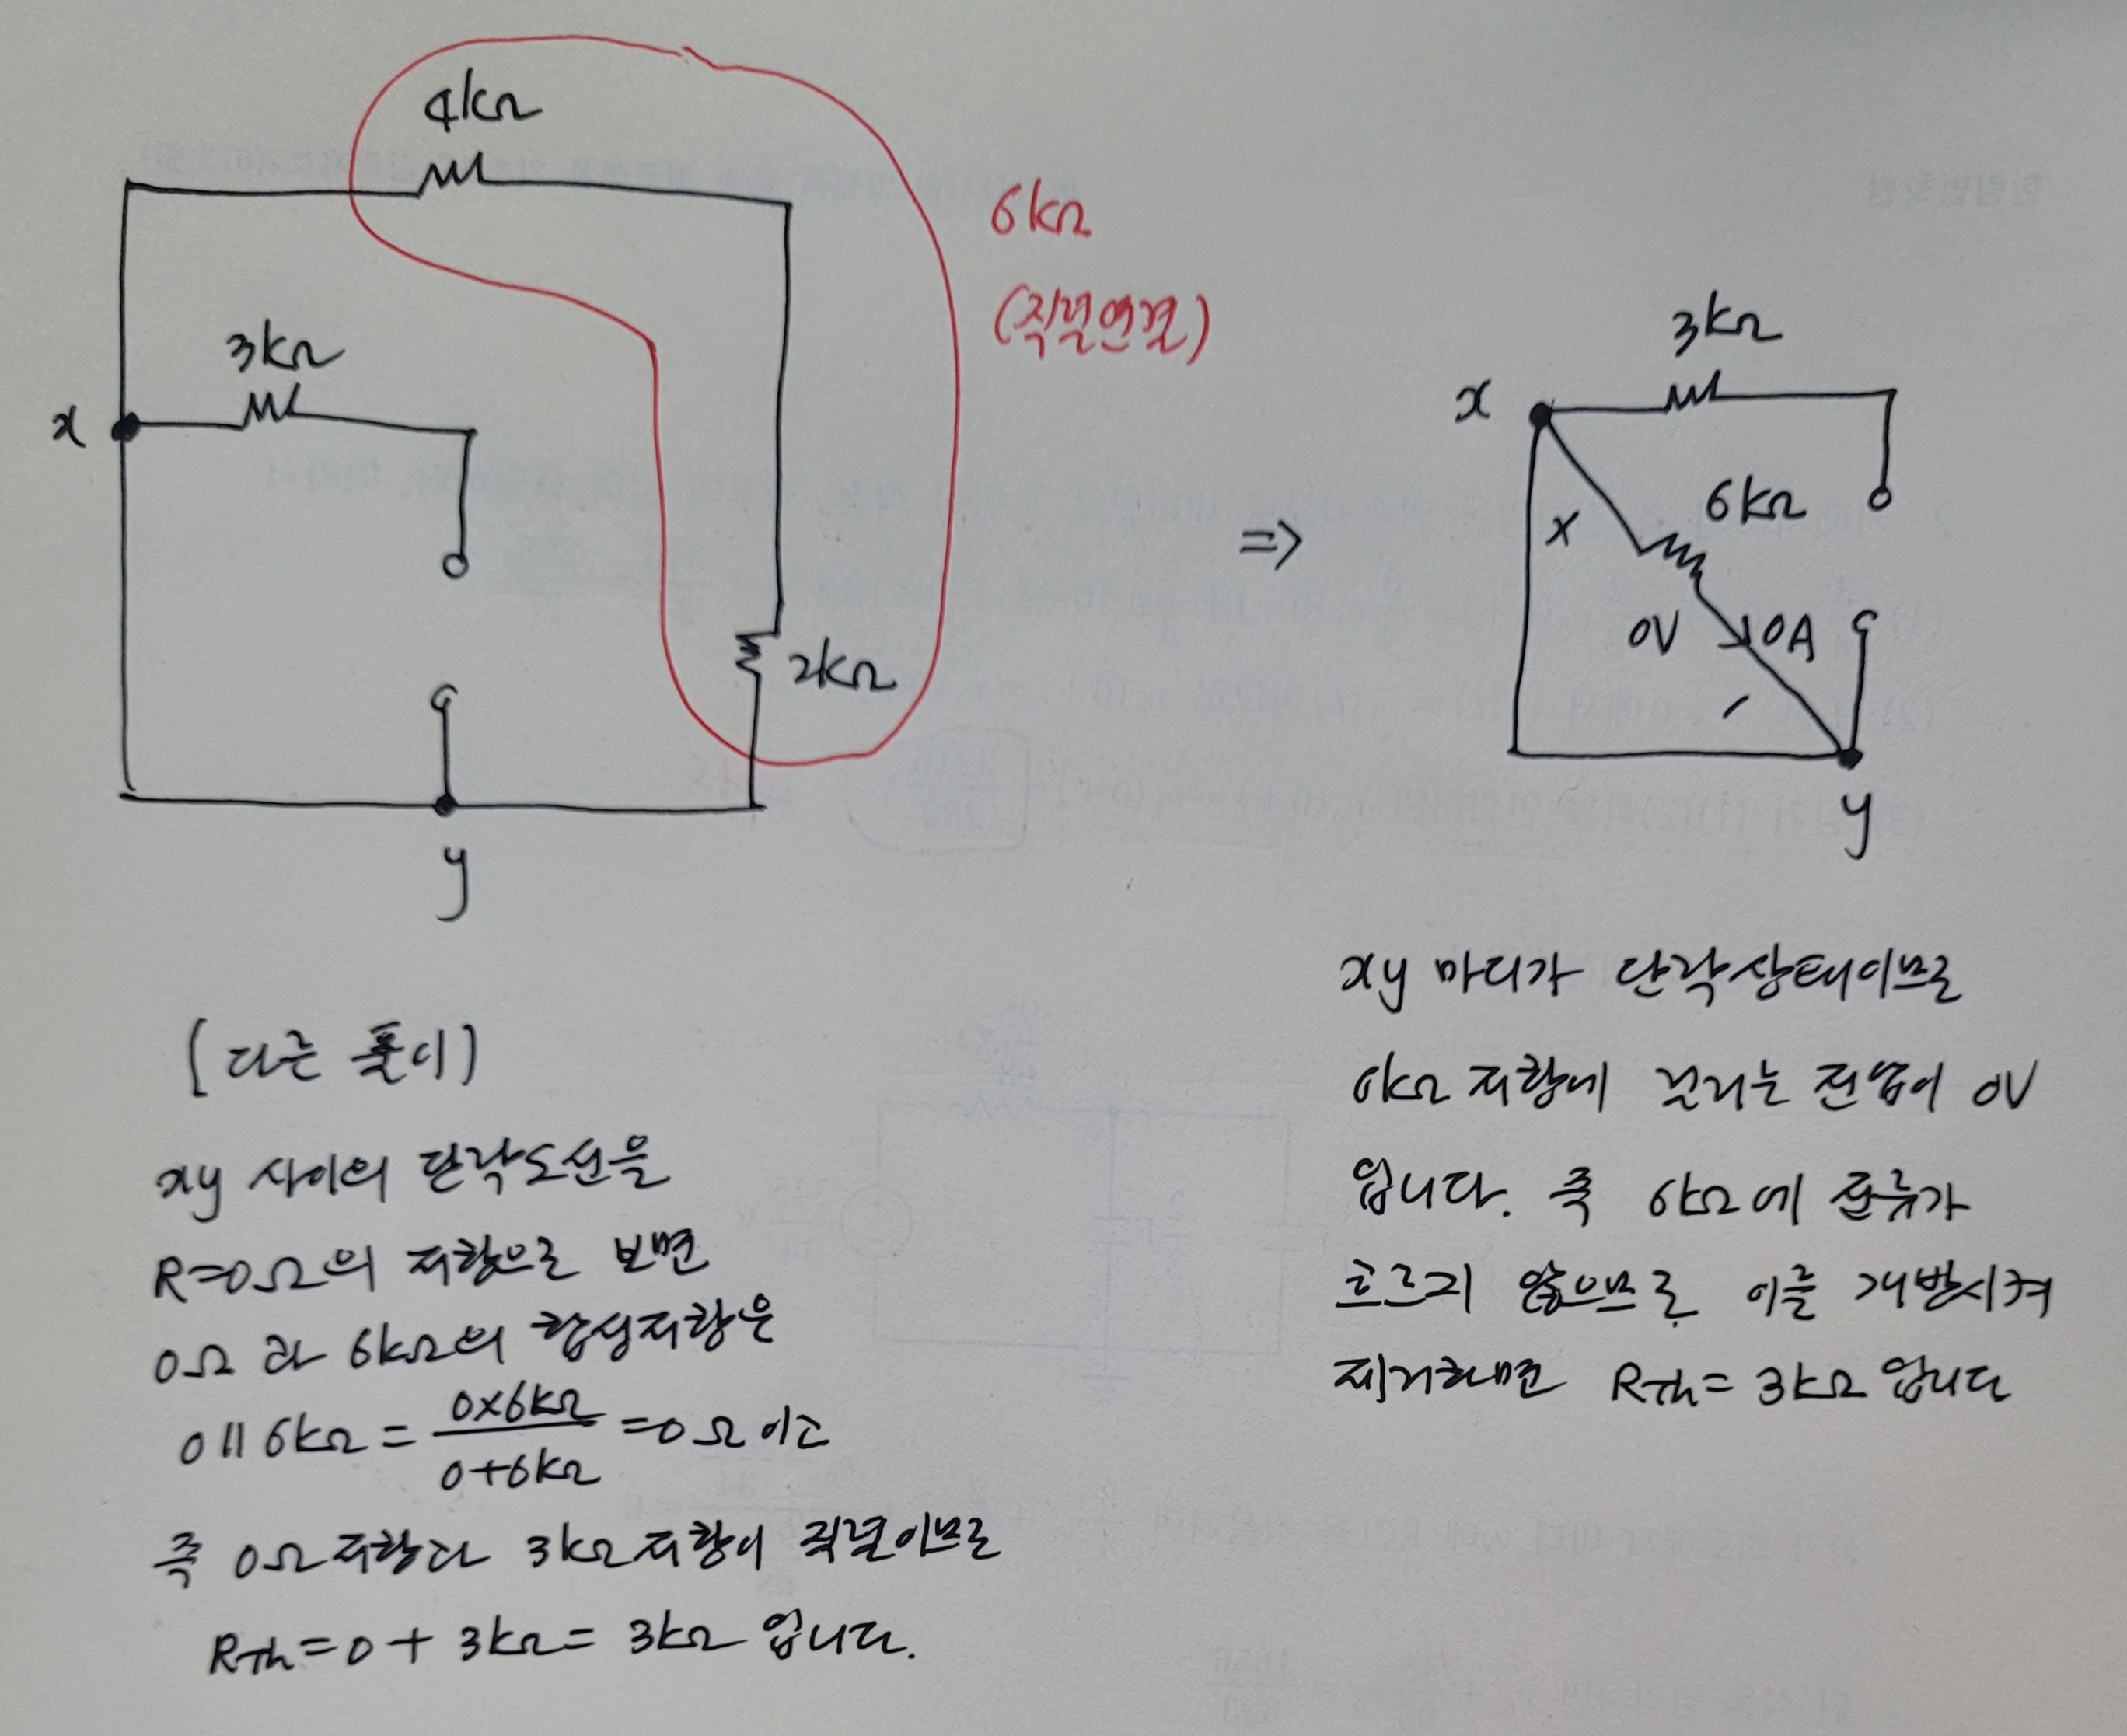 4kΩ
6kΩ
(직렬연결)
3kΩ
x
2kΩ
y
⇒
3kΩ
x
6kΩ
x
0V
0A
y
xy 마디가 단락상태이므로
6kΩ 저항에 걸리는 전압이 0V
입니다. 즉 6kΩ에 전류가
흐르지 않으므로 이를 개방시켜
제거하면 RTh = 3kΩ 입니다
(다른 풀이)
xy 사이의 단락도선을
R=0Ω의 저항으로 보면
0Ω과 6kΩ의 합성저항은
0 || 6kΩ = 0×6kΩ / 0+6kΩ = 0Ω 이고
즉 0Ω저항과 3kΩ저항이 직렬이므로
RTh = 0 + 3kΩ = 3kΩ 입니다.